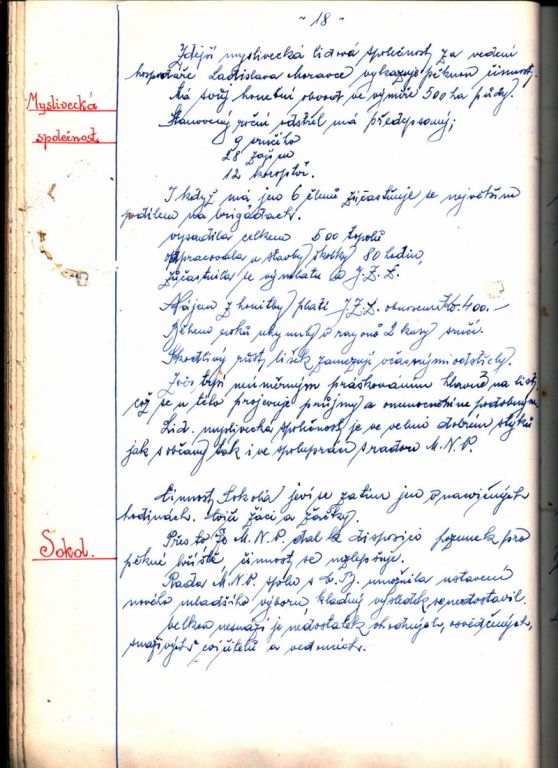 ~ 18 ~
Zdejší myslivecká lidová společnost za vedení
hospodáře Ladislava Moravce vykazuje pěknou činnost.
Myslivecká
Má svůj honební obvod ve výměře 500 ha půdy.
společnost.
Stanovený roční odstřel má předepsaný;
9 srnčího
28 zajíců
12 koroptví.
I když má jen 6 členů zúčastňuje se největším
podílem na brigádách.
vysadila celkem 500 topolů
odpracovala u stavby školky 80 hodin,
zúčastnila se výmlatu v J.Z.D.
Nájem z honitby platí J.Z.D. obnosem Kčs 400.-
Během roku uhynuly 2 kusy srnčí.
Škodlivý růst lišek zamezují včasnými odstřely.
Zvěř trpí neúměrným práškováním hlavně na
což se u těla projevuje průjmy a podobným.
Lid. myslivecká společnost je ve velmi dobrém styku
jak s občany tak i ve spolupráci s radou M.N.V.
Činnost Sokola jeví se zatím jen v nacvičných
hodinách. cvičí žáci a žačky.
Sokol.
Přes to že M.N.V. dal k disposici pozemek pro
pěkné hřiště činnost se nezlepšuje.
Rada M.N.V. spolu s umožnila ustavení
nového mladšího výboru, kladný výsledek se nedostavil.
velkou nesnází je nedostatek vhodných, osvědčených,
snaživých cvičitelů a vedoucích.